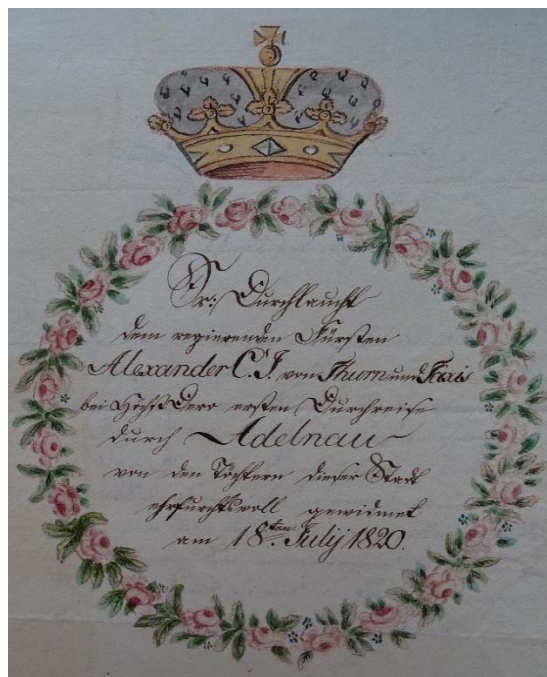 Sr: Durchlaucht
dem regierenden Fürsten
Alexander C. J. von Thurn und Taxis
bei HöchstDero ersten Durchreise
durch Adelnau
von den Töchtern dieser Stadt
ehrfurchtsvoll gewidmet
am 18ten July 1820.